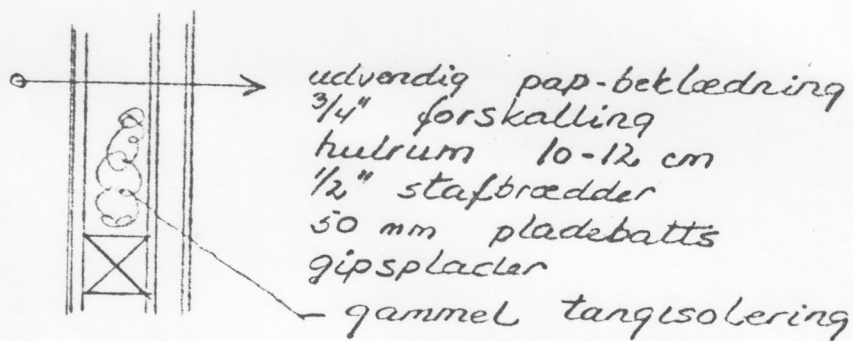 udvendig pap-beklædning
3/4" forskalling
hulrum 10-12 cm
1/2" stafbrædder
50 mm pladebatts
gipsplader
- gammel tangisolering